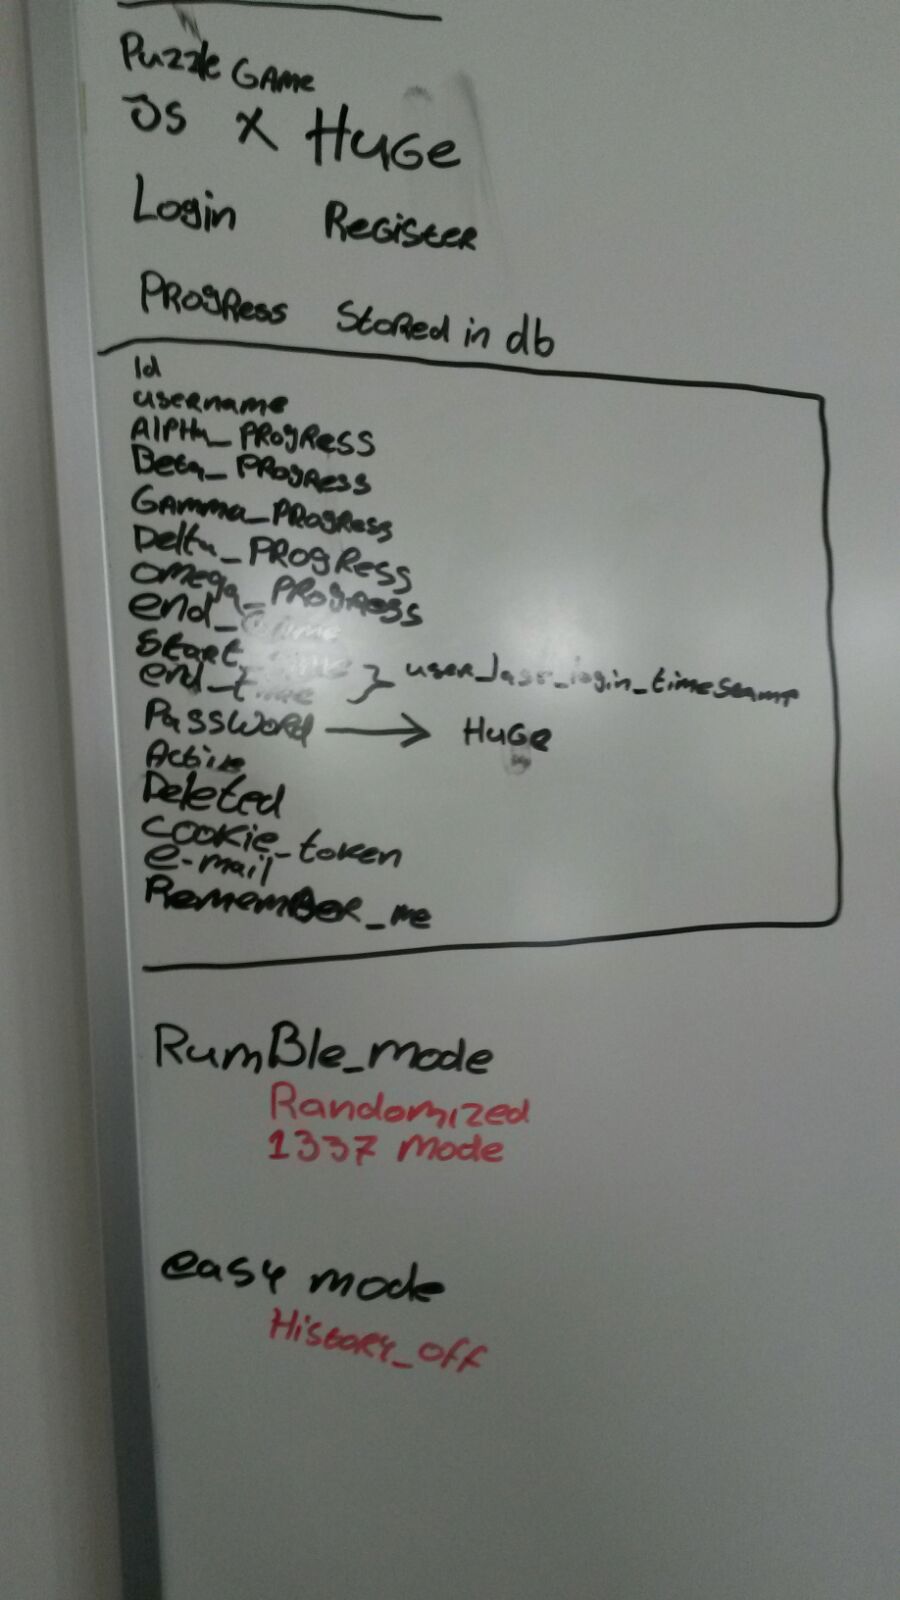 Puzzle Game
JS x Huge
Login Register
Progress Stored in db
Id
username
Alpha_Progress
Beta_Progress
Gamma_Progress
Delta_Progress
omega_Progress
end_
Start_
end_time } user_last_login_timestamp
Password → Huge
Active
Deleted
cookie_token
e-mail
Remember_me
Rumble_mode
Randomized
1337 mode
easy mode
History_off